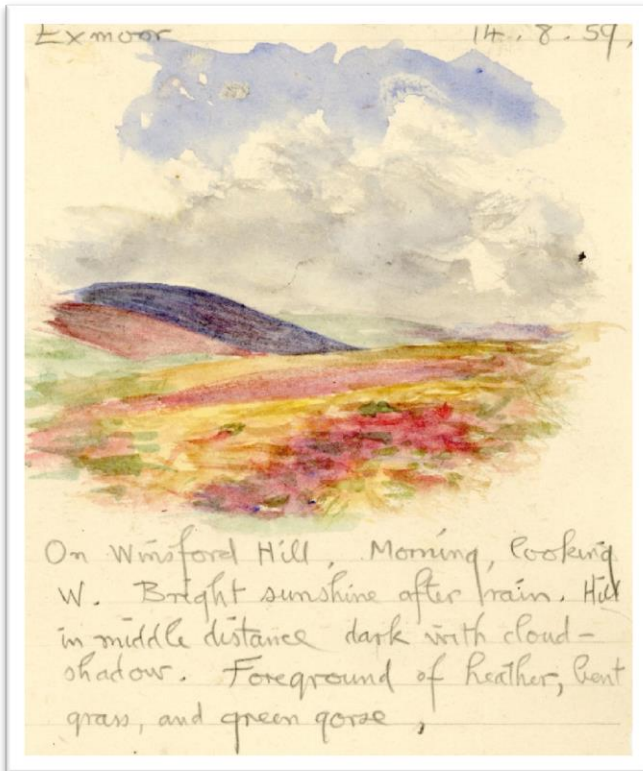 Exmoor 14.8.59,
On Winsford Hill, Morning, looking
W. Bright sunshine after rain. Hill
in middle distance dark with cloud-
shadow. Foreground of heather, bent
grass, and green gorse,